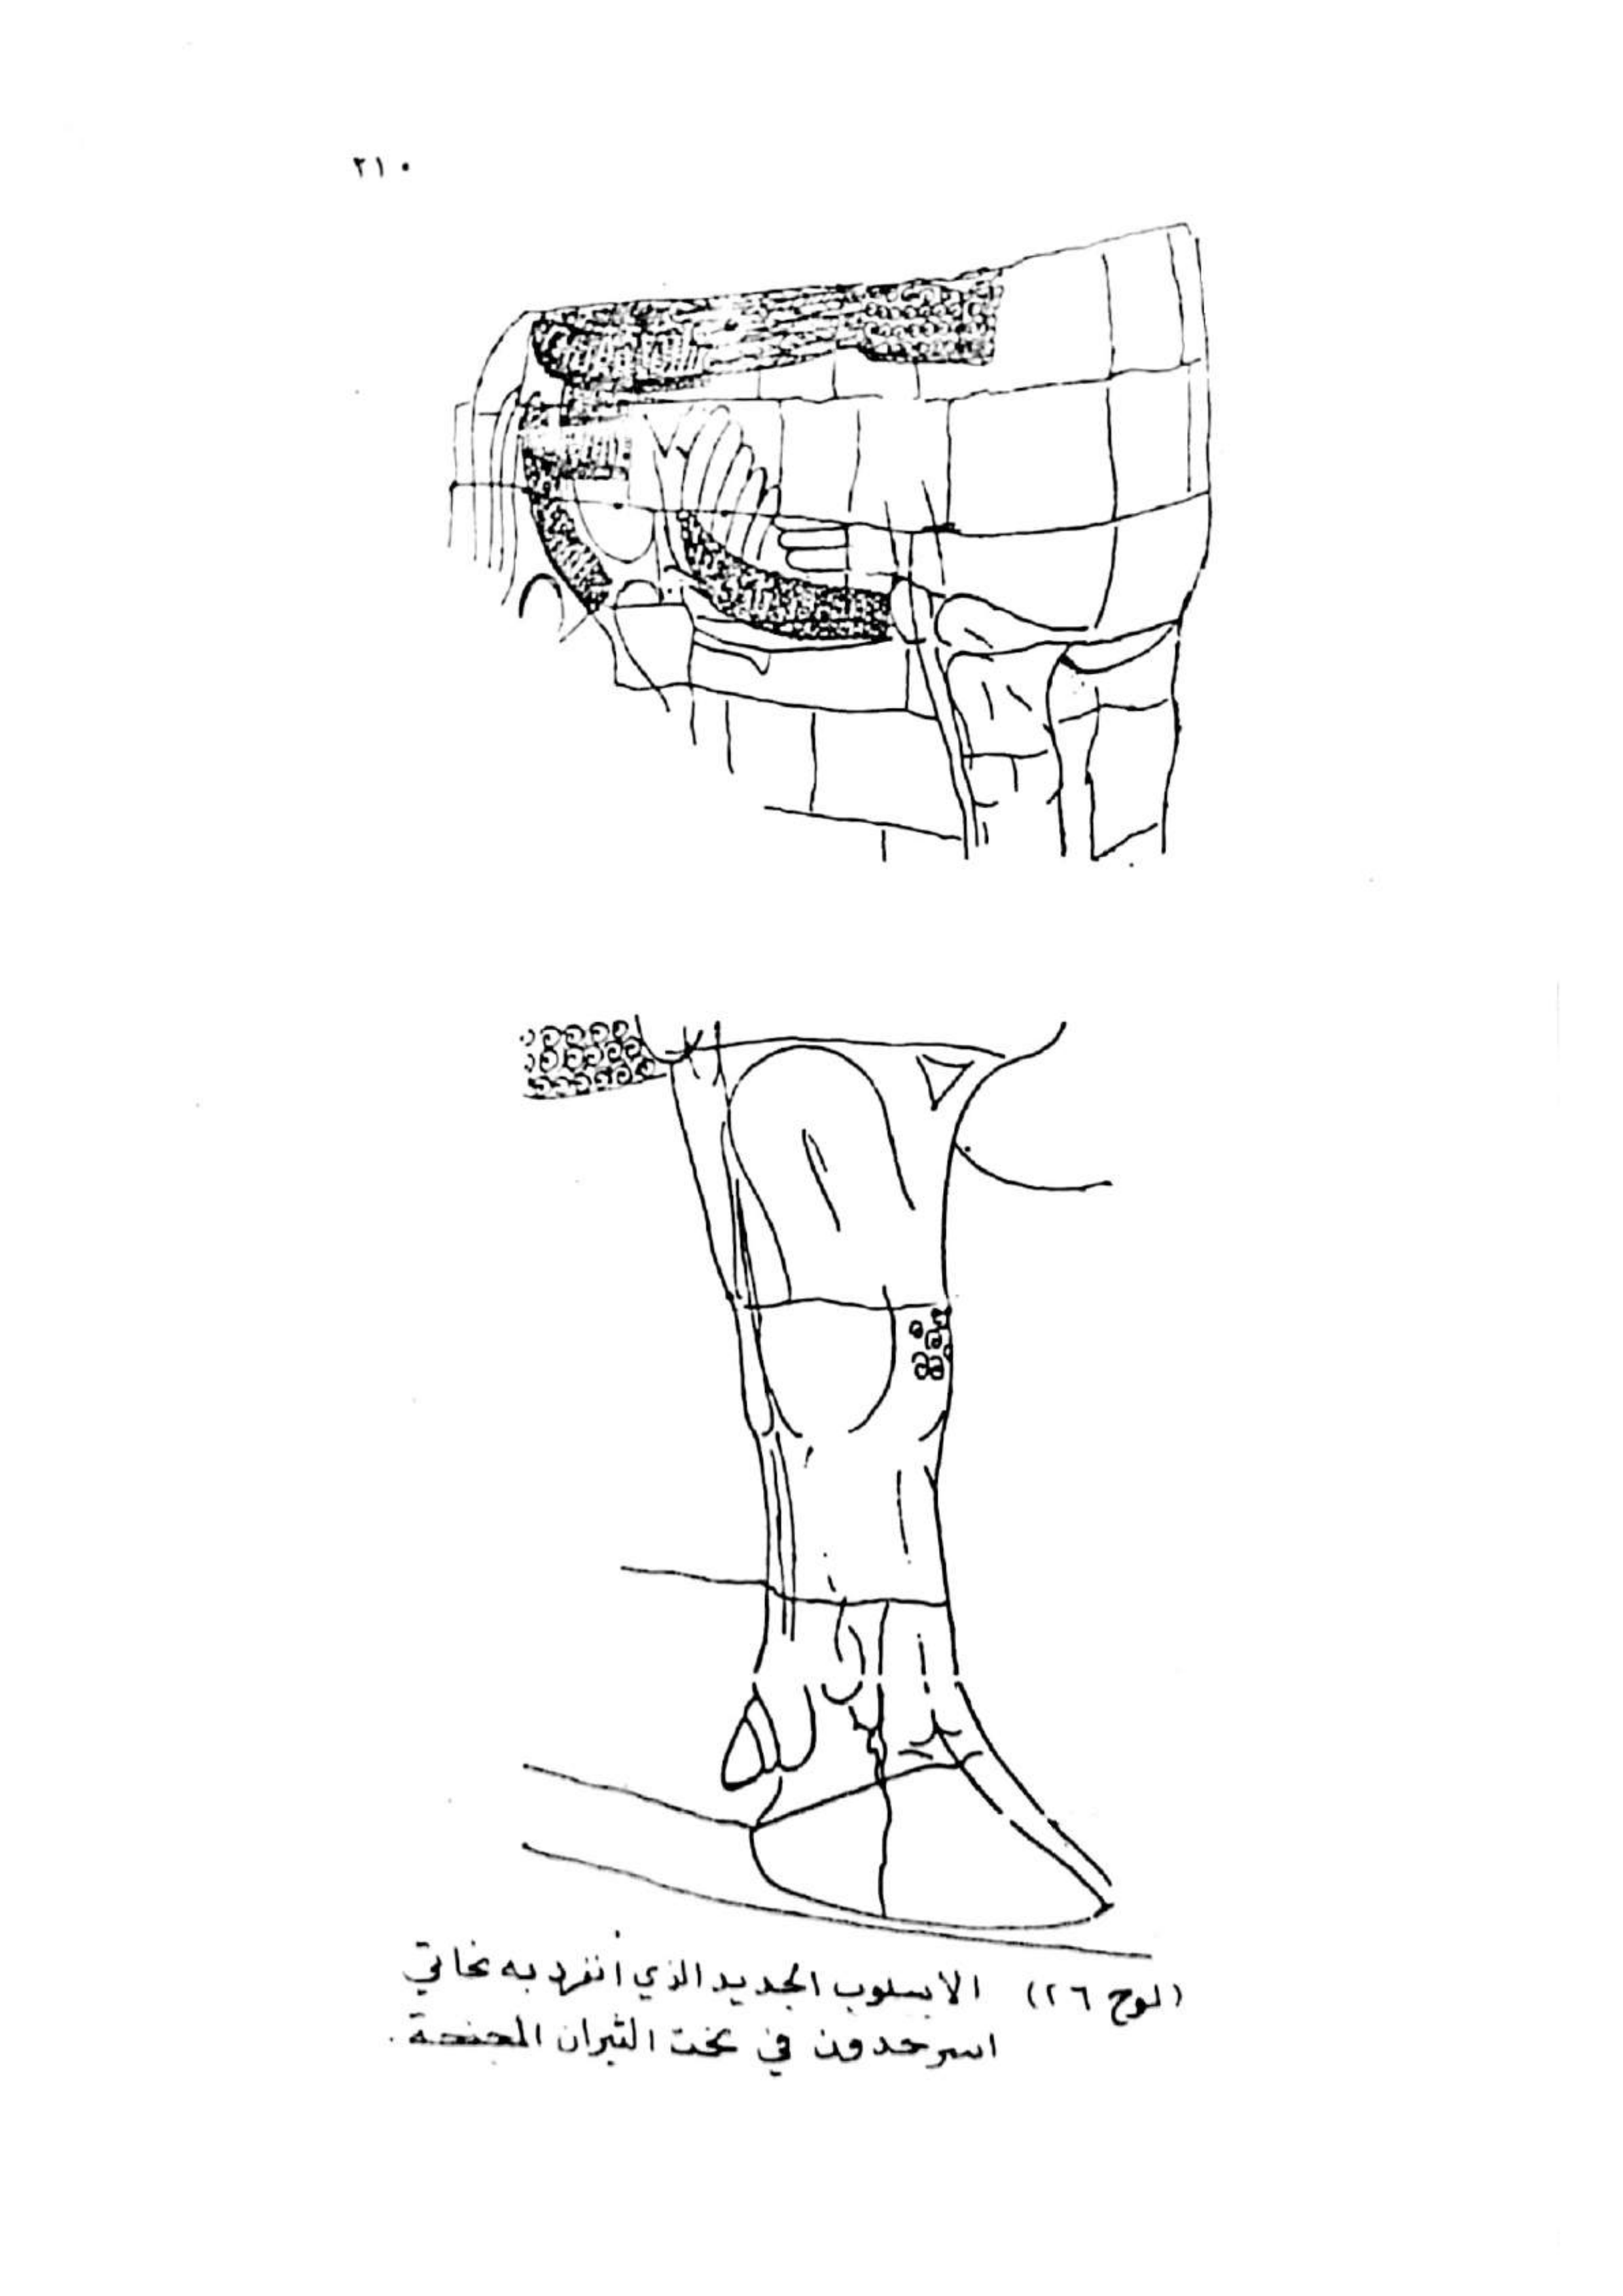 ٢١٠
(لوح ٢٦) الاسلوب الجديد الذي أنفرد به نحاتي
اسرحدون في نحت الثيران المجنحة.